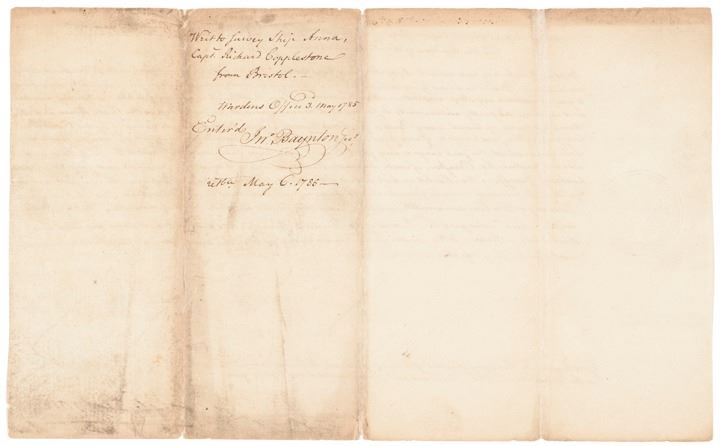 Writ to survey Ship Anna,
Capt. Richard Copplestone
from Bristol. —
Wardens Office 3. May 1785
Enter'd Jno. Baynton
May 6. 1785 —